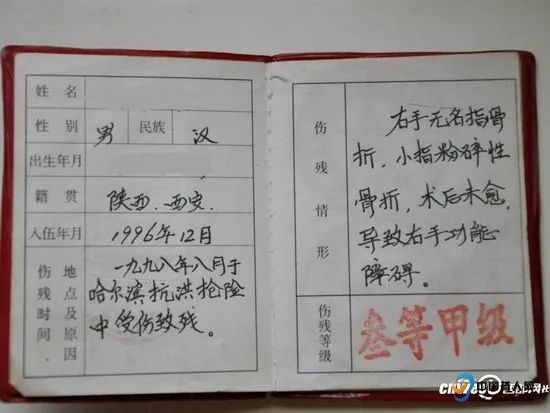 姓名
性别 男 民族 汉
出生年月
籍贯 陕西.西安.
入伍年月 1996年12月
伤残时间地点及原因
一九九八年八月于
哈尔滨抗洪抢险
中受伤致残。
伤残情形
右手无名指骨
折，小指粉碎性
骨折，术后未愈，
导致右手功能
障碍。
伤残等级
叁等甲级